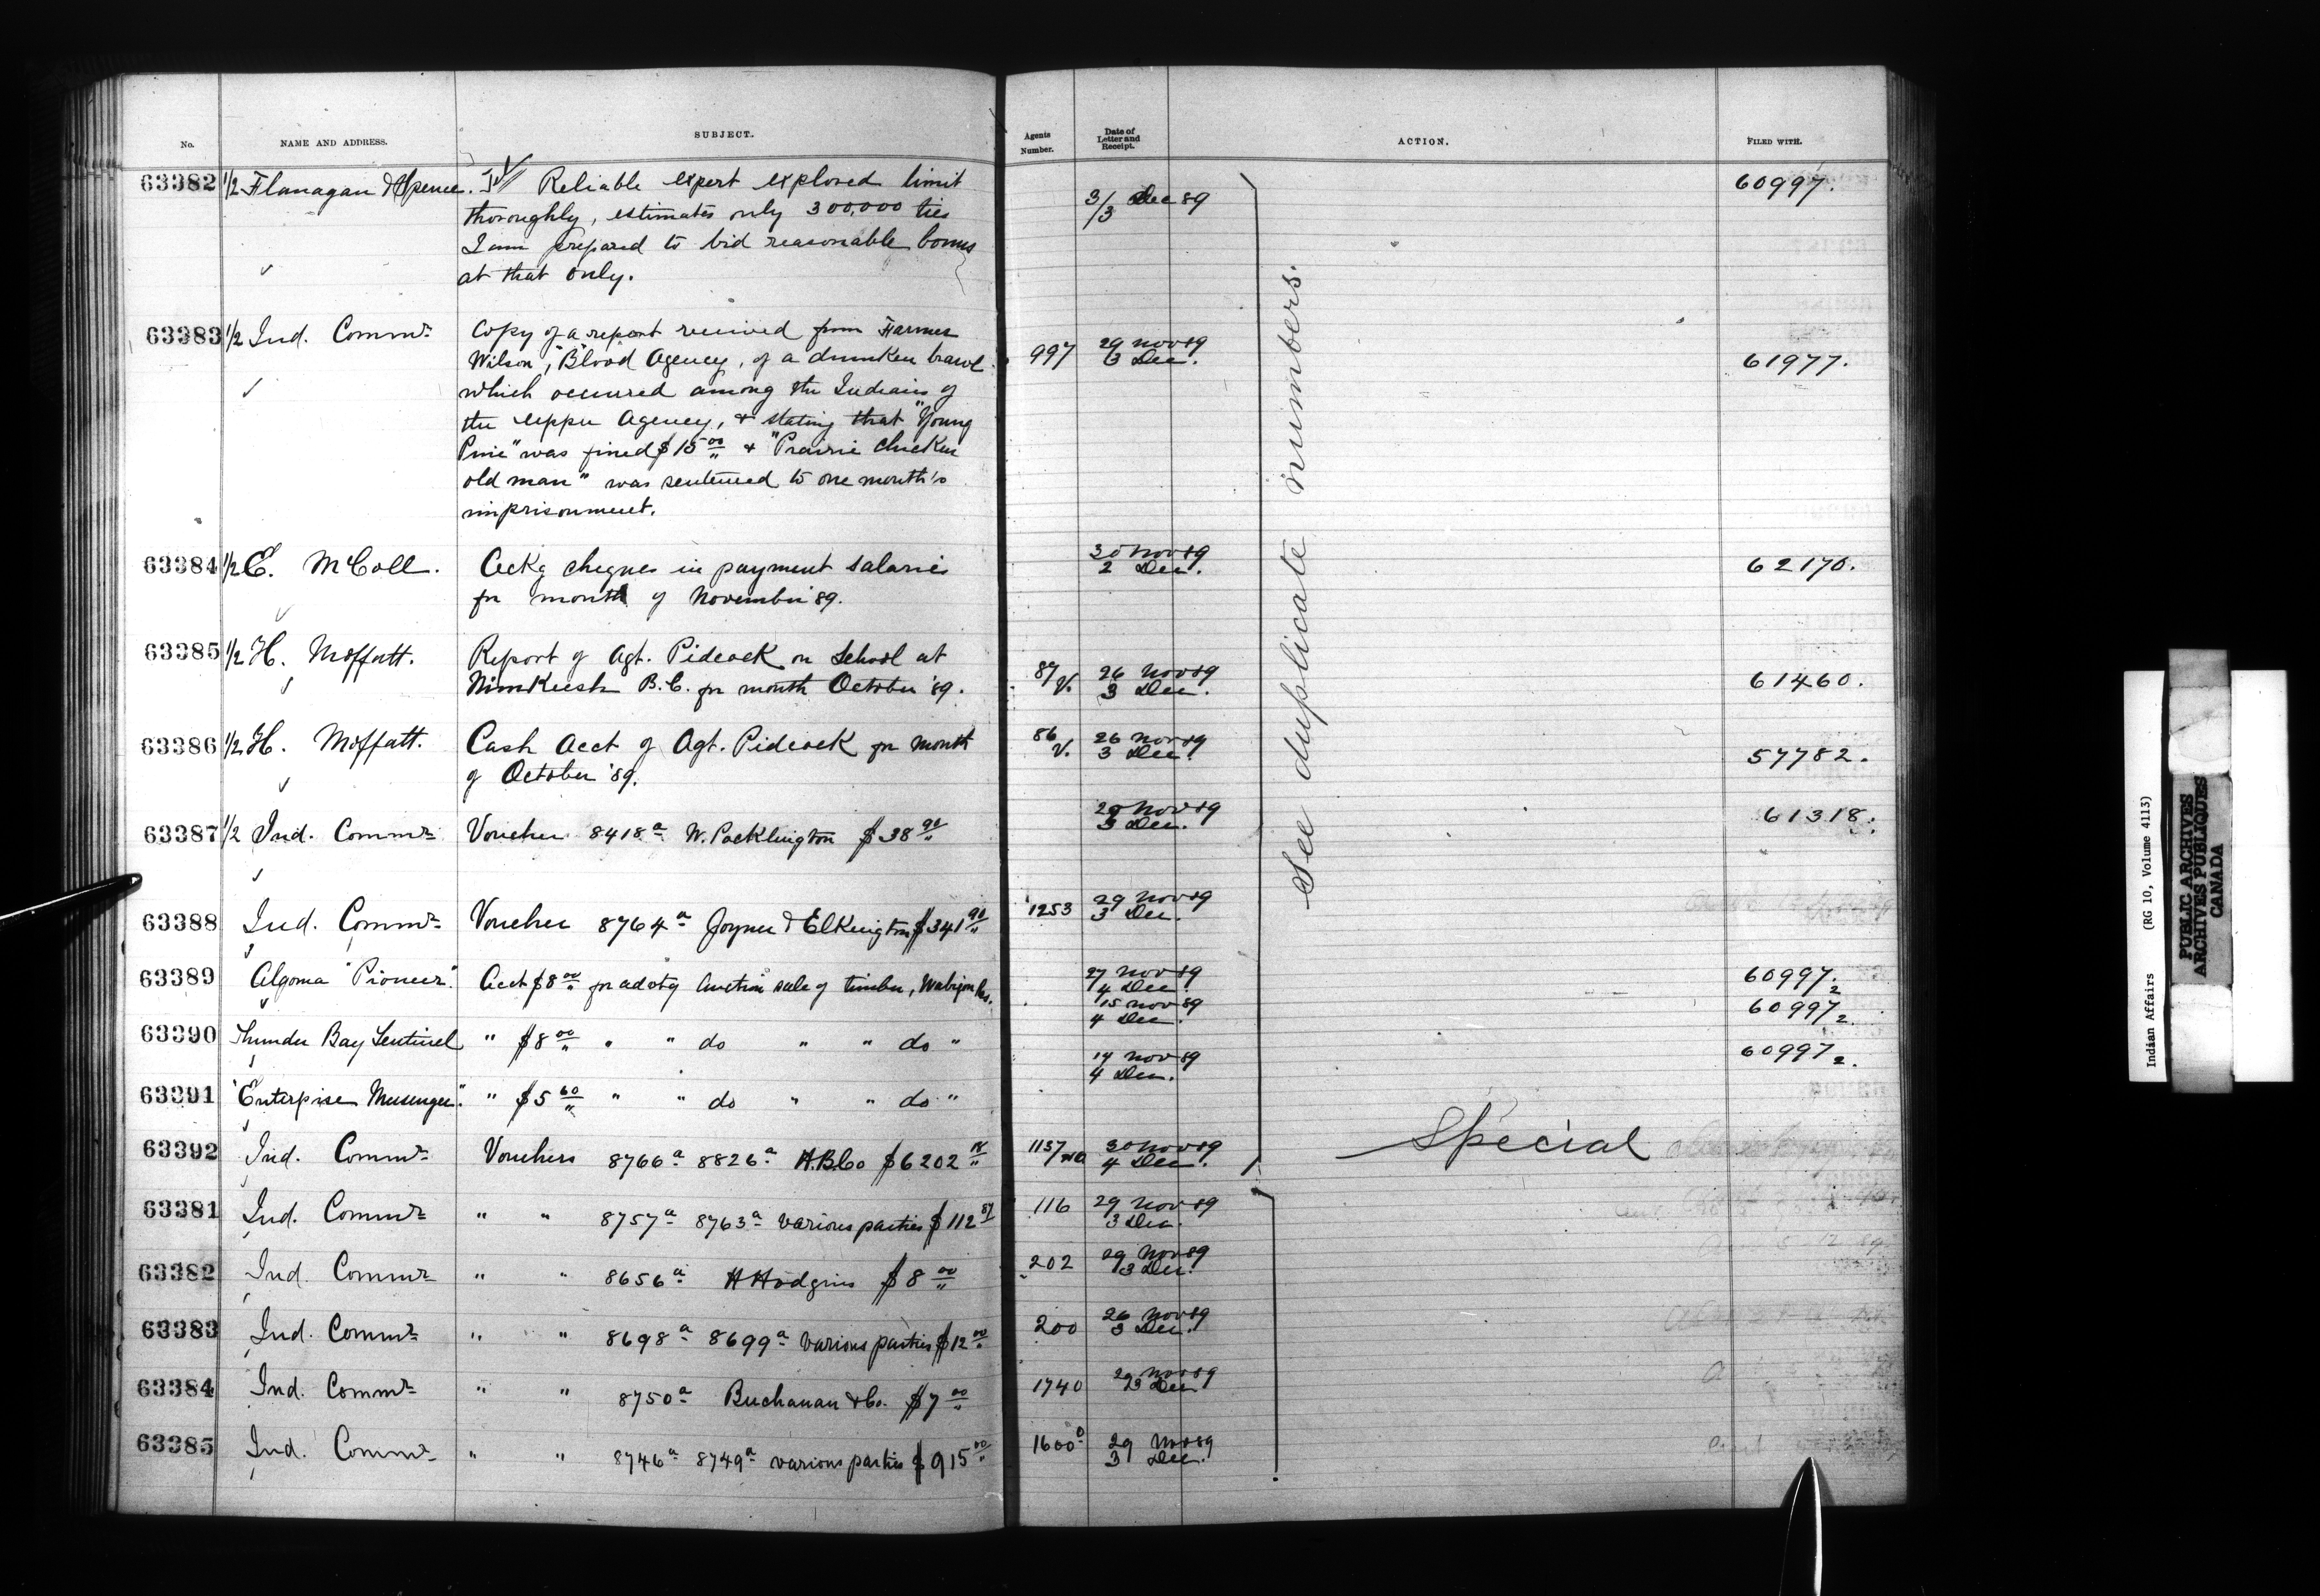 No. NAME AND ADDRESS. SUBJECT. Agents Number. Date of Letter and Receipt. ACTION. FILED WITH.
63382 1/2 Flanagan & Spence. Tel Reliable expert explored limit 3/3 Dec 89 60997.
thoroughly, estimates only 300,000 ties
I am prepared to bid reasonable bonus
at that only.
63383 1/2 Ind. Commr. Copy of a report received from Farmer 29 Nov 89
Wilson, "Blood" Agency, of a drunken brawl 997 3 Dec. 61977.
which occurred among the Indians of
the upper Agency, & stating that "Young
Pine" was fined $15 00 & "Prairie chicken
old man" was sentenced to one month's
imprisonment.
63384 1/2 E. McColl. Ackg cheques in payment salaries 30 Nov 89 2 Dec. 62170.
for month of November '89.
63385 1/2 H. Moffatt. Report of Agt. Pidcock on School at
Nimkeesh B.C. for month October '89. 87 V. 26 Nov 89 3 Dec. 61460.
63386 1/2 H. Moffatt. Cash Acct of Agt. Pidcock for month 86 V. 26 Nov 89 3 Dec. 57782.
of October '89.
63387 1/2 Ind. Commr. Voucher 8418a W. Pocklington $38 90 3 Dec. 61318.
63388 Ind. Commr. Voucher 8764a Joyner & Elkington $341 90 1253 29 Nov 89 3 Dec.
63389 Algoma "Pioneer". Acct $8 00 for advtg Auction sale of timber, Wabigon Res. 27 Nov 89 4 Dec 60997.2
63390 Thunder Bay Sentinel " $8 00 " " do " " do " 15 Nov 89 4 Dec. 60997 2.
63391 "Enterprise Messenger". " $5 60 " " do " " do " 4 Dec. 60997 2.
63392 Ind. Commr. Vouchers 8766a 8826a H.B.Co $6202 1137 30 Nov 89 4 Dec. Special
See duplicate numbers.
63381 Ind. Commr. " " 8757a 8763a various parties $112 87 116 29 Nov 89 3 Dec.
63382 Ind. Commr. " " 8656a H Hodgins $8 00 202 29 Nov 89 3 Dec.
63383 Ind. Commr. " " 8698a 8699a various parties $12 00 200 26 Nov 89 3 Dec.
63384 Ind. Commr. " " 8750a Buchanan & Co. $7 00 1740 29 Nov 89 3 Dec
63385 Ind. Commr. " " 8746a 8749a various parties $915 00 1600 29 Nov 89 3 Dec.
Indian Affairs (RG 10, Volume 4113)
PUBLIC ARCHIVES
ARCHIVES PUBLIQUES
CANADA